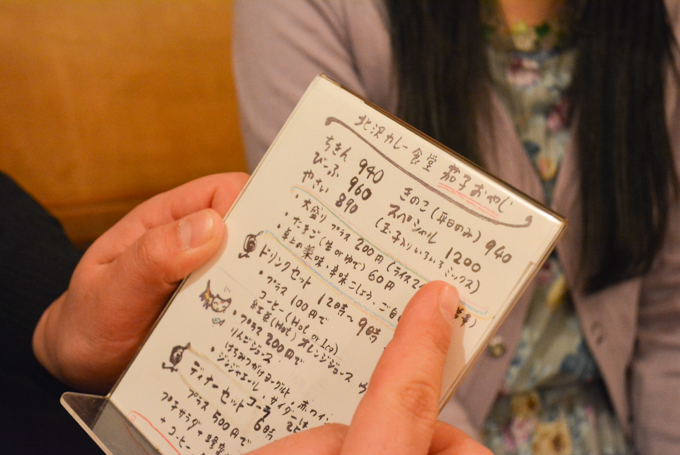 北沢カレー食堂 茄子おやじ
ちきん 940 きのこ(平日のみ) 940
びーふ 960 スペシャル 1200
やさい 890 (玉子入りいろいろミックス)
・大盛り プラス 200円 (ライス
・たまご(生orゆで) 60円
・卓上の薬味・辛味こしょう、ご自
ドリンクセット 12時〜9時
・プラス 100円で
コーヒー(Hot or Ice)
紅茶(Hot) オレンジジュース
・プラス 200円で
りんごジュース
はちみつ ヨーグルト 赤ワイン
ジンジャエール・サイダー
ディナーセット コーラ
プラス 500円で
プチサラダ
+コーヒー